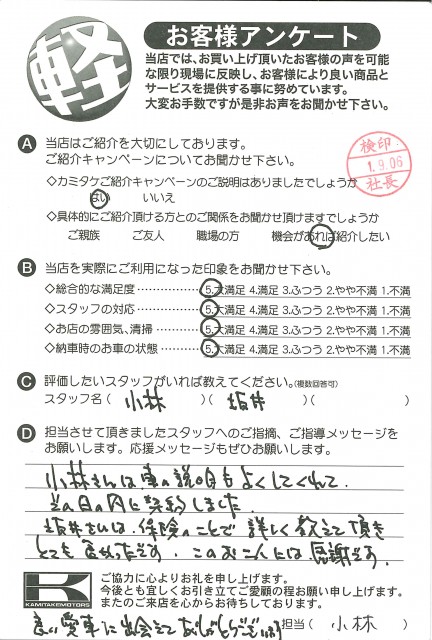 軽
お客様アンケート
当店では、お買い上げ頂いたお客様の声を可能
な限り現場に反映し、お客様により良い商品と
サービスを提供する事に努めています。
大変お手数ですが是非お声をお聞かせ下さい。
A 当店はご紹介を大切にしております。
ご紹介キャンペーンについてお聞かせ下さい。
検印
1.9.06
社長
◇カミタケご紹介キャンペーンのご説明はありましたでしょうか
はい いいえ
◇具体的にご紹介頂ける方とのご関係をお聞かせ頂けますでしょうか
ご親族 ご友人 職場の方 機会があれば紹介したい
B 当店を実際にご利用になった印象をお聞かせ下さい。
◇総合的な満足度 5.大満足 4.満足 3.ふつう 2.やや不満 1.不満
◇スタッフの対応 5.大満足 4.満足 3.ふつう 2.やや不満 1.不満
◇お店の雰囲気、清掃 5.大満足 4.満足 3.ふつう 2.やや不満 1.不満
◇納車時のお車の状態 5.大満足 4.満足 3.ふつう 2.やや不満 1.不満
C 評価したいスタッフがいれば教えてください。(複数回答可)
スタッフ名( 小林 )( 坂井 )( )
D 担当させて頂きましたスタッフへのご指摘、ご指導メッセージを
お願いします。応援メッセージもぜひお願いします。
小林さんは車の説明もよくしてくれて、
その日の内に契約しました。
坂井さんは、保険のことで詳しく教えて頂き
とても良かったです。このお二人には感謝です。
K
KAMITAKEMOTORS
ご協力に心よりお礼を申し上げます。
今後とも宜しくお引き立てご愛顧の程お願い申し上げます。
またのご来店を心からお待ちしております。
良い愛車に出会えてありがとうございます 担当( 小林 )